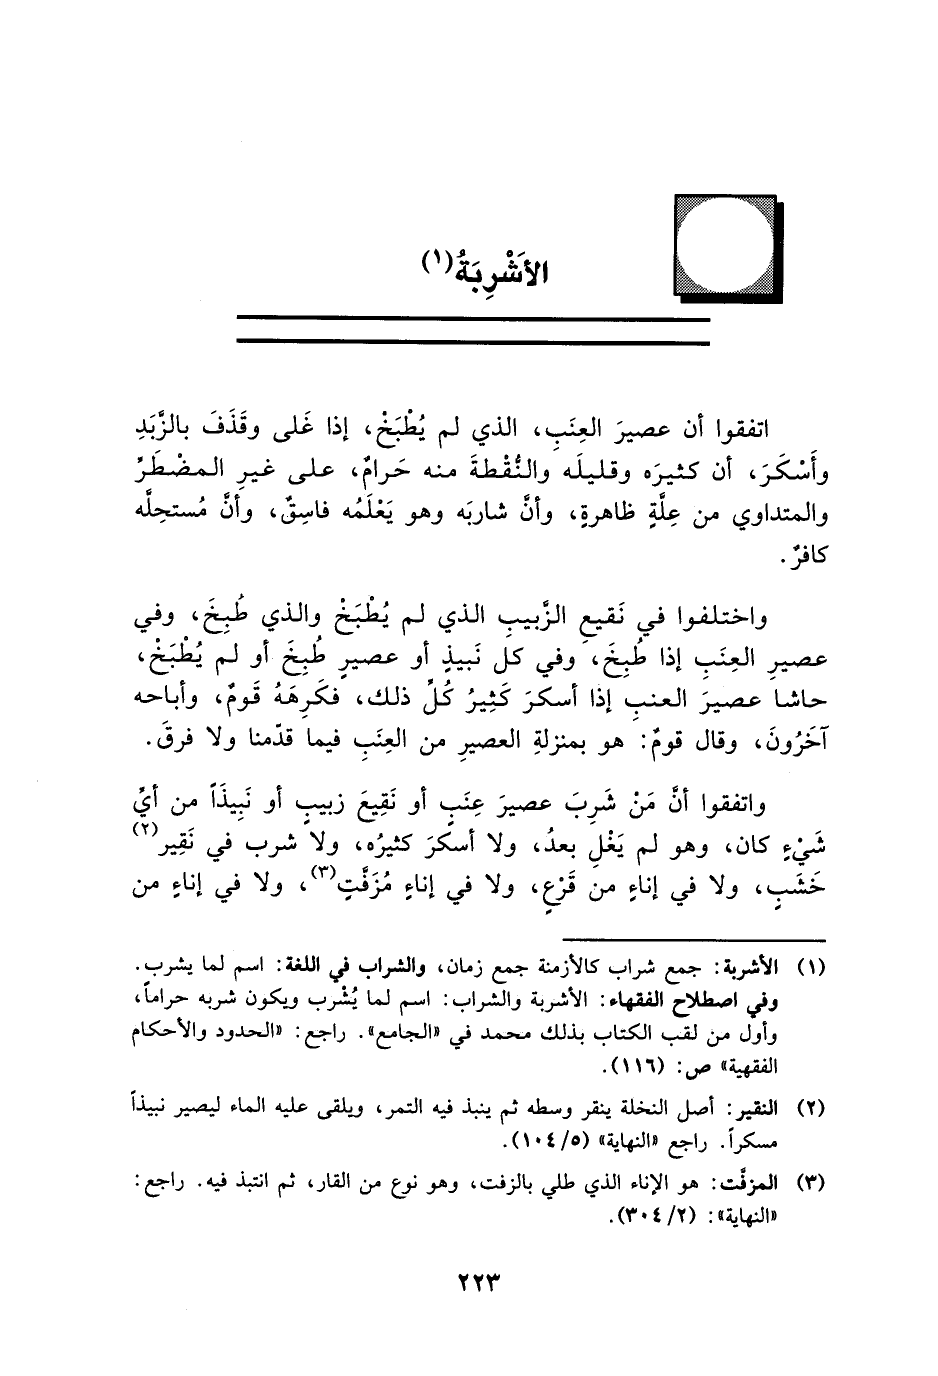 الأَشْرِبَةُ(١)
اتفقوا أن عصيرَ العِنَبِ، الذي لم يُطْبَخْ، إذا غَلى وقَذَفَ بالزَّبَدِ
وأَسْكَرَ، أن كثيرَه وقليلَه والنُّقْطةَ منه حَرامٌ، على غيرِ المضْطَرِّ
والمتداوي من عِلَّةٍ ظاهرةٍ، وأنَّ شاربَه وهو يَعْلَمُه فاسِقٌ، وأنَّ مُستحِلَّه
كافرٌ.
واختلفوا في نَقيعِ الزَّبيبِ الذي لم يُطْبَخْ والذي طُبِخَ، وفي
عصيرِ العِنَبِ إذا طُبِخَ، وفي كل نَبيذٍ أو عصيرٍ طُبِخَ أو لم يُطْبَخْ،
حاشا عصيرَ العنبِ إذا أسكرَ كَثِيرُ كُلِّ ذلك، فكَرِهَهُ قَومٌ، وأباحه
آخَرُونَ، وقال قومٌ: هو بمنزلةِ العصيرِ من العِنَبِ فيما قدّمنا ولا فرقَ.
واتفقوا أنَّ مَنْ شَرِبَ عصيرَ عِنَبٍ أو نَقِيعَ زبيبٍ أو نَبِيذَاً من أيِّ
شَيْءٍ كان، وهو لم يَغْلِ بعدُ، ولا أسكرَ كثيرُه، ولا شرب في نَقِير(٢)
خَشَبٍ، ولا في إناءٍ من قَرْعٍ، ولا في إناءٍ مُزَفَّتٍ(٣)، ولا في إناءٍ من
(١) الأشربة: جمع شراب كالأزمنة جمع زمان، والشراب في اللغة: اسم لما يشرب.
وفي اصطلاح الفقهاء: الأشربة والشراب: اسم لما يُشْرب ويكون شربه حراماً،
وأول من لقب الكتاب بذلك محمد في «الجامع». راجع: «الحدود والأحكام
الفقهية» ص: (١١٦).
(٢) النقير: أصل النخلة ينقر وسطه ثم ينبذ فيه التمر، ويلقى عليه الماء ليصير نبيذاً
مسكراً. راجع «النهاية» (١٠٤/٥).
(٣) المزفَّت: هو الإناء الذي طلي بالزفت، وهو نوع من القار، ثم انتبذ فيه. راجع:
«النهاية»: (٣٠٤/٢).
٢٢٣